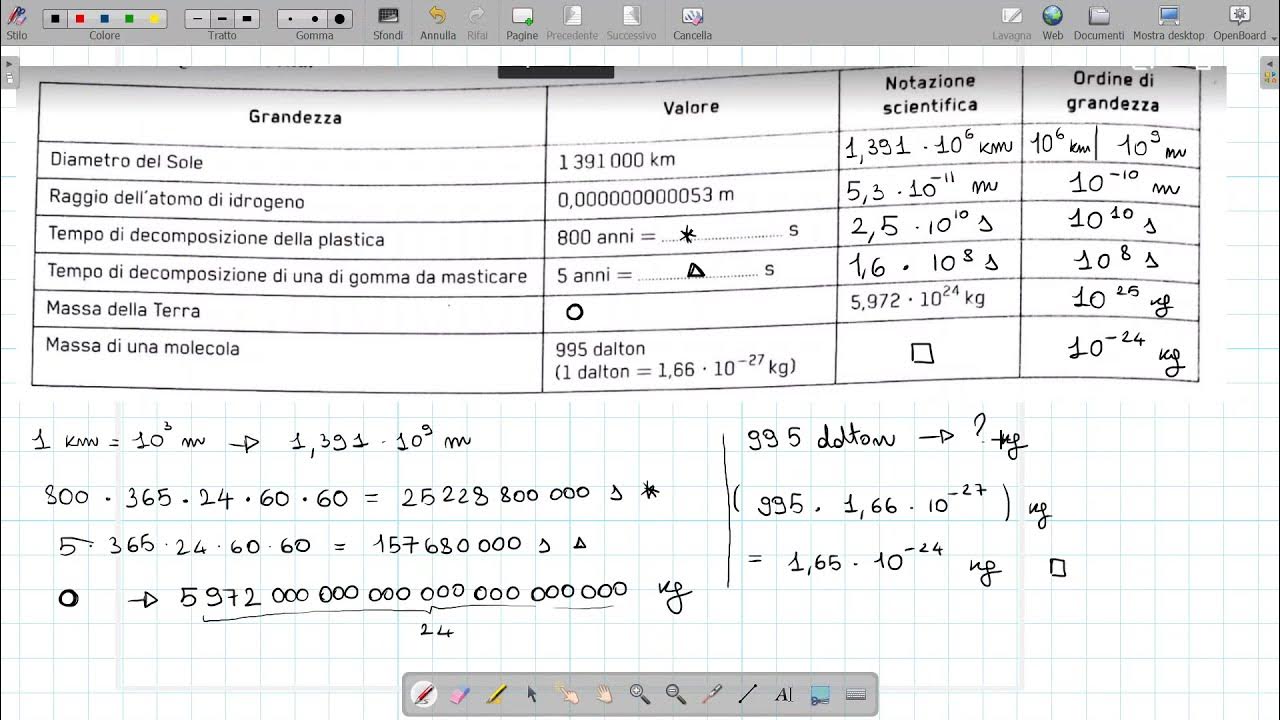 Stilo Colore Tratto Gomma Sfondi Annulla Rifai Pagine Precedente Successivo Cancella Lavagna Web Documenti Mostra desktop OpenBoard
Grandezza Valore Notazione scientifica Ordine di grandezza
Diametro del Sole 1 391 000 km 1,391 · 10⁶ km 10⁶ km | 10⁹ m
Raggio dell'atomo di idrogeno 0,000000000053 m 5,3 · 10⁻¹¹ m 10⁻¹⁰ m
Tempo di decomposizione della plastica 800 anni = ...*... s 2,5 · 10¹⁰ s 10¹⁰ s
Tempo di decomposizione di una di gomma da masticare 5 anni = ...△... s 1,6 · 10⁸ s 10⁸ s
Massa della Terra O 5,972 · 10²⁴ kg 10²⁵ kg
Massa di una molecola 995 dalton □ 10⁻²⁴ kg
(1 dalton = 1,66 · 10⁻²⁷ kg)
1 km = 10³ m → 1,391 · 10⁹ m
800 · 365 · 24 · 60 · 60 = 25 228 800 000 s *
5 · 365 · 24 · 60 · 60 = 157 680 000 s △
O → 5 972 000 000 000 000 000 000 000 kg
24
995 dalton → ? kg
(995 · 1,66 · 10⁻²⁷) kg
= 1,65 · 10⁻²⁴ kg □
AI